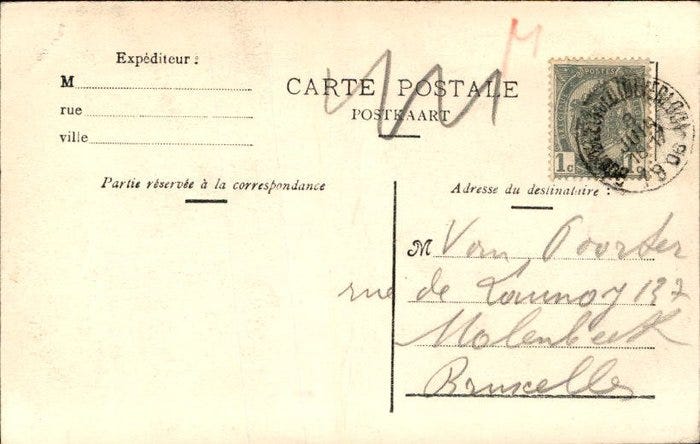 Expéditeur :
M
rue
ville
CARTE POSTALE
POSTKAART
M
POSTES
1c 1c
Partie réservée à la correspondance
Adresse du destinataire :
M Van Poorter
rue de Launoy 137
Molenbeek
Bruxelles